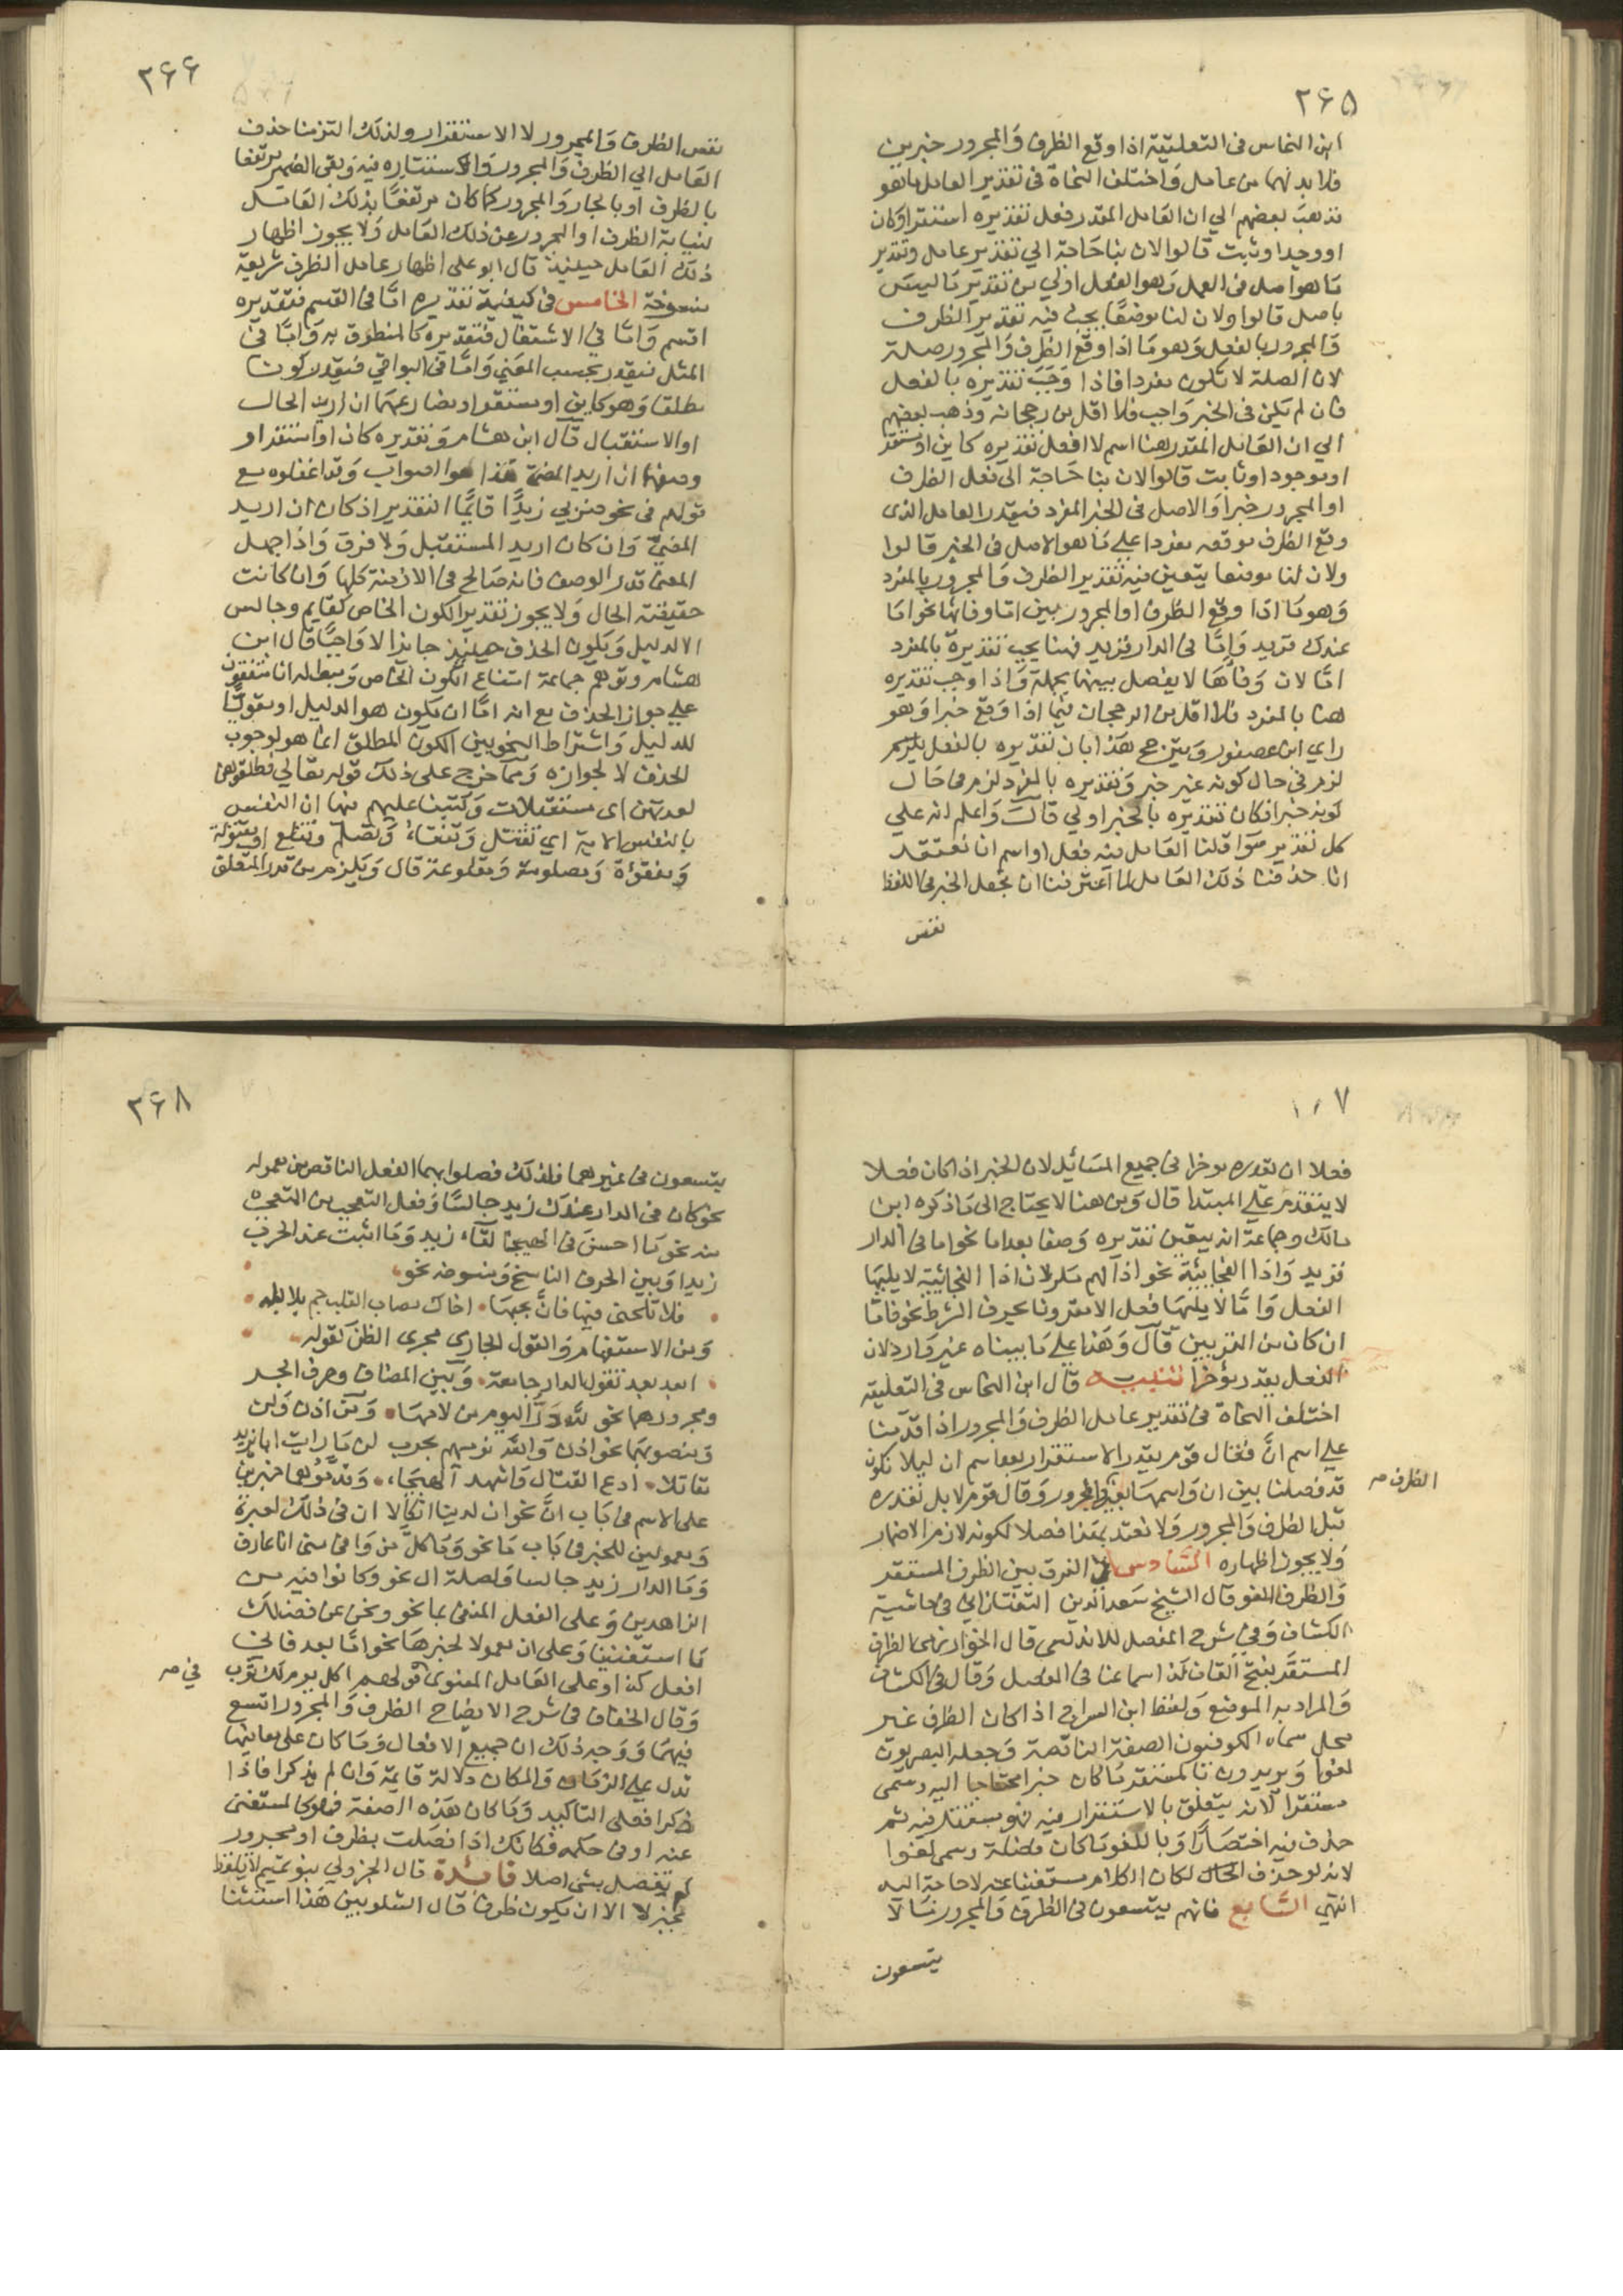 ٢۶۵
ابن النحاس فى التعليقة اذا وقع الظرف والمجرور خبرين
فلا بد لهما من عامل واختلف النحاة فى تقدير العامل ما هو
فذهب بعضهم الي ان العامل المقدر فعل تقديره استقر او كان
او وجد او ثبت قالوا لان بنا حاجة الي تقدير عامل وتقدير
ما هو اصل فى العمل وهو الفعل اولي من تقدير ما ليس
باصل قالوا ولان لنا موضعًا يجب فيه تقدير الظرف
والمجرور بالفعل وهو ما اذا وقع الظرف والمجرور صلة
لان الصلة لا تكون مفردا فاذا وجب تقديره بالفعل
فان لم يكن فى الخبر واجب فلا اقل من رجحانه وذهب بعضهم
الي ان العامل المقدر هنا اسم لا فعل تقديره كاين او مستقر
او موجود او ثابت قالوا لان بنا حاجة الى نقل الظرف
او المجرور خبرا والاصل فى الخبر المفرد فيقدر العامل الذى
وقع الظرف موقعه مفردا علي ما هو الاصل فى الخبر قالوا
ولان لنا موضعا يتعين فيه تقدير الظرف والمجرور بالمفرد
وهو ما اذا وقع الظرف او المجرور بين اما وفائها نحو اما
عندك فزيد واما فى الدار فزيد فهنا يجب تقديره بالمفرد
امّا لان وفاءها لا يفصل بينهما بجملة واذا وجب تقديره
هنا بالمفرد فلا اقل من الرجحان فيما اذا وقع خبرا وهو
راي ابن عصفور ويترجح هذا بان تقديره بالفعل يلزم
لزم فى حال كونه غير خبر وتقديره بالمفرد لزم فى حال
كونه خبرا فكان تقديره بالخبر اولي قال واعلم انه علي
كل تقدير سوا قلنا العامل فيه فعل او اسم انا نعتقد
انا حذفنا ذلك العامل لما اعتزمنا ان نجعل الخبر فى اللفظ
نفس
٢۶۶
نفس الظرف والمجرور لا الاستقرار ولذلك التزمنا حذف
العامل الي الظرف والمجرور والاستتاره فيه وبقى الضمير مرتفعا
بالظرف او بالجار والمجرور كما كان مرتفعًا بذلك العامل
لنيابة الظرف او المجرور عن ذلك العامل ولا يجوز اظهار
ذلك العامل حينيذ قال ابو على اظهار عامل الظرف شريعة
منسوخة الخامس فى كيفية تقديره امّا فى القسم فتقديره
اقسم وامّا في الاشتغال فتقديره كالمنطوق به وامّا فى
المثل فيقدر بحسب المعني وامّا فى البواقي فيقدر كونا
مطلقا وهو كاين او مستقر او مضارعهما ان اريد الحال
او الاستقبال قال ابن هشام وتقديره كان او استقر او
وصفهما ان اريد المضى هذا هو الصواب وقد اغفلوه مع
قولهم فى نحو ضربي زيدًا قائمًا التقدير اذ كان ان اريد
المضيّ وان كان اريد المستقبل ولا فرق واذا جهل
المعنى قدر الوصف فانه صالح فى الازمنة كلها وان كانت
حقيقته الحال ولا يجوز تقدير الكون الخاص كقايم وجالس
الا لدليل ويكون الحذف حينيذ جايزا لا واجبًا قال ابن
هشام وتوهم جماعة امتناع الكون الخاص ويبطله انا متفقون
علي جواز الحذف مع انه امّا ان يكون هو الدليل او مقويًا
للدليل واشتراط النحويين الكون المطلق انما هو لوجوب
الحذف لا لجوازه وممّا خرج على ذلك قوله تعالي فطلقوهن
لعدتهن اى مستقبلات وكتبنا عليهم فيها ان النفس
بالنفس الاية اي تقتل وتفقاء وتصلم وتقلع او مقتولة
ومفقؤة ومصلومة ومقلوعة قال ويلزم من قدر المتعلق
٧
فعلا ان يقدره موخرا فى جميع المسائل لان الخبر اذا كان فعلا
لا يتقدم علي المبتدا قال ومن هنا لا يحتاج الى ما ذكره ابن
مالك وجماعة انه يتعين تقديره وصفا بعد اما نحو اما فى الدار
فزيد واذا الفجائية نحو اذا لهم مكر لان اذا الفجائية لا يليها
الفعل واما لا يليها فعل الا مقرونا بحرف الشرط نحو فامّا
ان كان من المقربين قال وهذا علي ما بيناه غير وارد لان
الفعل يقدر مؤخرا تنبيه قال ابن النحاس فى التعليقة
اختلف النحاة فى تقدير عامل الظرف والمجرور اذا قدمنا
علي اسم انّ فقال قوم يقدر الاستقرار بعد اسم ان ليلا نكون
قد فصلنا بين ان واسمها بغير والمجرور وقال قوم لا بل نقدره
الظرف صح
قبل الظرف والمجرور ولا نعتد بهذا فصلا لكونه لازم الاضمار
ولا يجوز اظهاره السّادس فى الفرق بين الظرف المستقر
والظرف اللغو قال الشيخ سعد الدين التفتازاني فى حاشية
الكشاف وفي شرح المفصل للاندلسى قال الخوارزمى الظرف
المستقَر بفتح القاف كذا سماعنا فى المفصل وقال فى الكشاف
والمراد به الموضع ولفظ ابن السراج اذا كان الظرف غير
محل سماه الكوفيون الصفة الناقصة وجعله البصريون
لغوا ويريدون بالمستقر ما كان خبرا محتاجا اليه وسمى
مستقرا لانه يتعلق بالاستقرار فيه فهو مستقر فيه ثم
حذف فيه اختصارًا وباللغو ما كان فضلة وسمى لغوا
لانه لو حذف الحال لكان الكلام مستغنيا عنه لا حاجة اليه
انتهي السّابع فانهم يتسعون فى الظرف والمجرور ما لا
يتسعون
٢۶٨
يتسعون فى غيرهما فلذلك فصلوا بهما الفعل الناقص من معموله
نحو كان فى الدار عندك زيد جالسًا وفعل التعجب من المتعجب
منه نحو ما احسن فى الهيجا لقاء زيد وما اثبت عند الحرب
زيدا وبين الحرف الناسخ ومنسوخه نحو
فلا تلحنى فيها فانّ بحبها اخاك مصاب القلب جم بلابله
ومن الاستفهام والقول الجاري مجرى الظن كقوله
ابعد بعد تقول الدار جامعة وبين المضاف وحرف الجر
ومجرورهما نحو لله درّ اليوم من لامها وبين اذن ولن
ومنصوبهما نحو اذن والله نرميهم بحرب لن ما رايت ابا يزيد
مقاتلا ادع القتال واشهد الهيجاء وقدّموهما خبرين
على الاسم فى باب انّ نحو ان لدينا انكالا ان فى ذلك لعبرة
ومعمولين للخبر فى باب ما نحو وما كلّ من وافى منى انا عارف
وما الدار زيد جالسا ولصلة ال نحو وكانوا فيه من
الزاهدين وعلى الفعل المنفى بما نحو ونحن عن فضلك
ما استغنينا وعلى ان معمولا لخبرها نحو امّا بعد فاني
افعل كذا وعلى العامل المعنوى قولهم اكل يوم لك ثوب
في صح
وقال الخفاف فى شرح الايضاح الظرف والمجرور اتسع
فيهما ووجه ذلك ان جميع الافعال وما كان على معانيها
تدل علي الزمان والمكان دلالة قايمة وان لم يذكرا فاذا
ذكرا فعلى التاكيد وما كان بهذه الصفة فهو كالمستغنى
عنه او فى حكمه فكانك اذا فصلت بظرف او مجرور
لم تفصل بشى اصلا فائدة قال الجزولي بنو تميم لا يلفظ
بخبر لا الا ان يكون ظرفا قال الشلوبين هذا استثنا